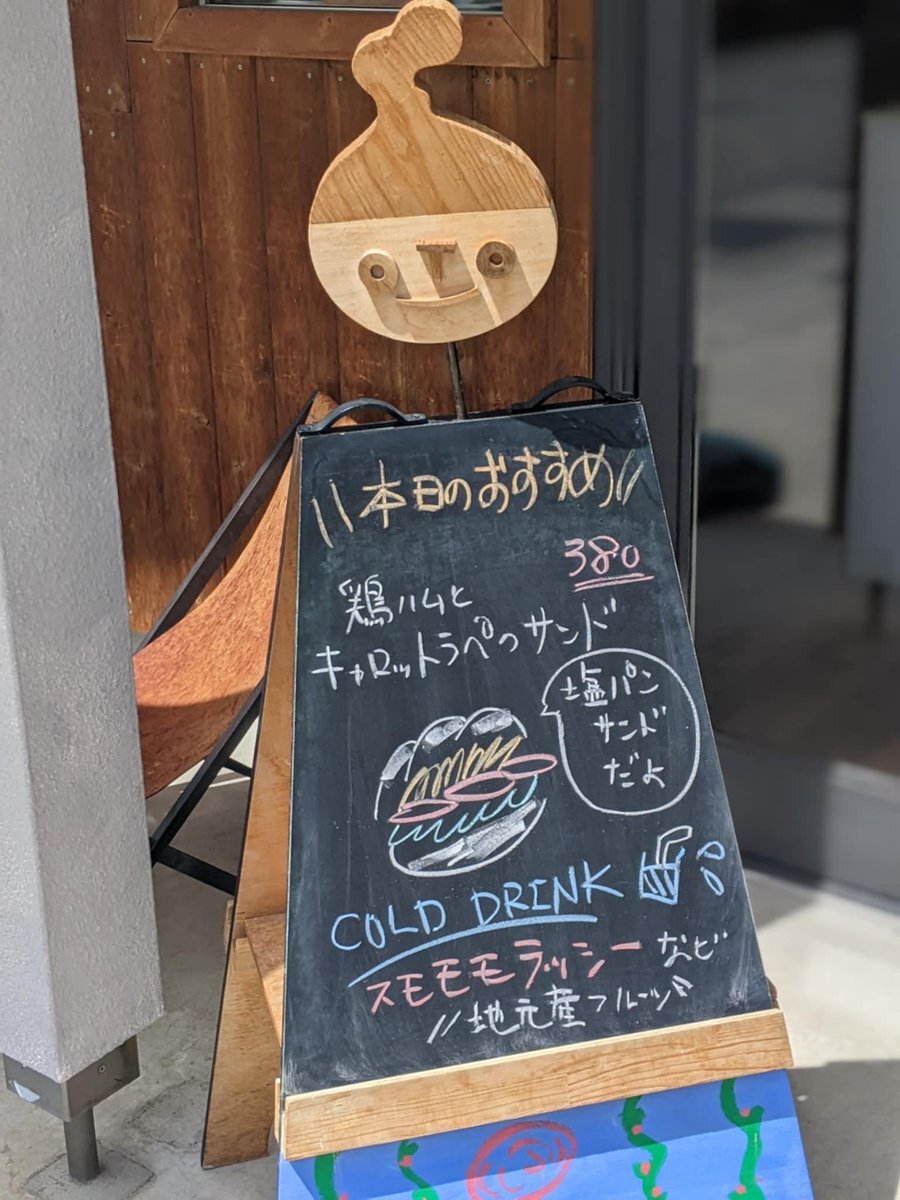 \\本日のおすすめ//
380
鶏ハムと
キャロットラペのサンド
塩パン
サンド
だよ
COLD DRINK
スモモモラッシーなど
//地元産フルーツ